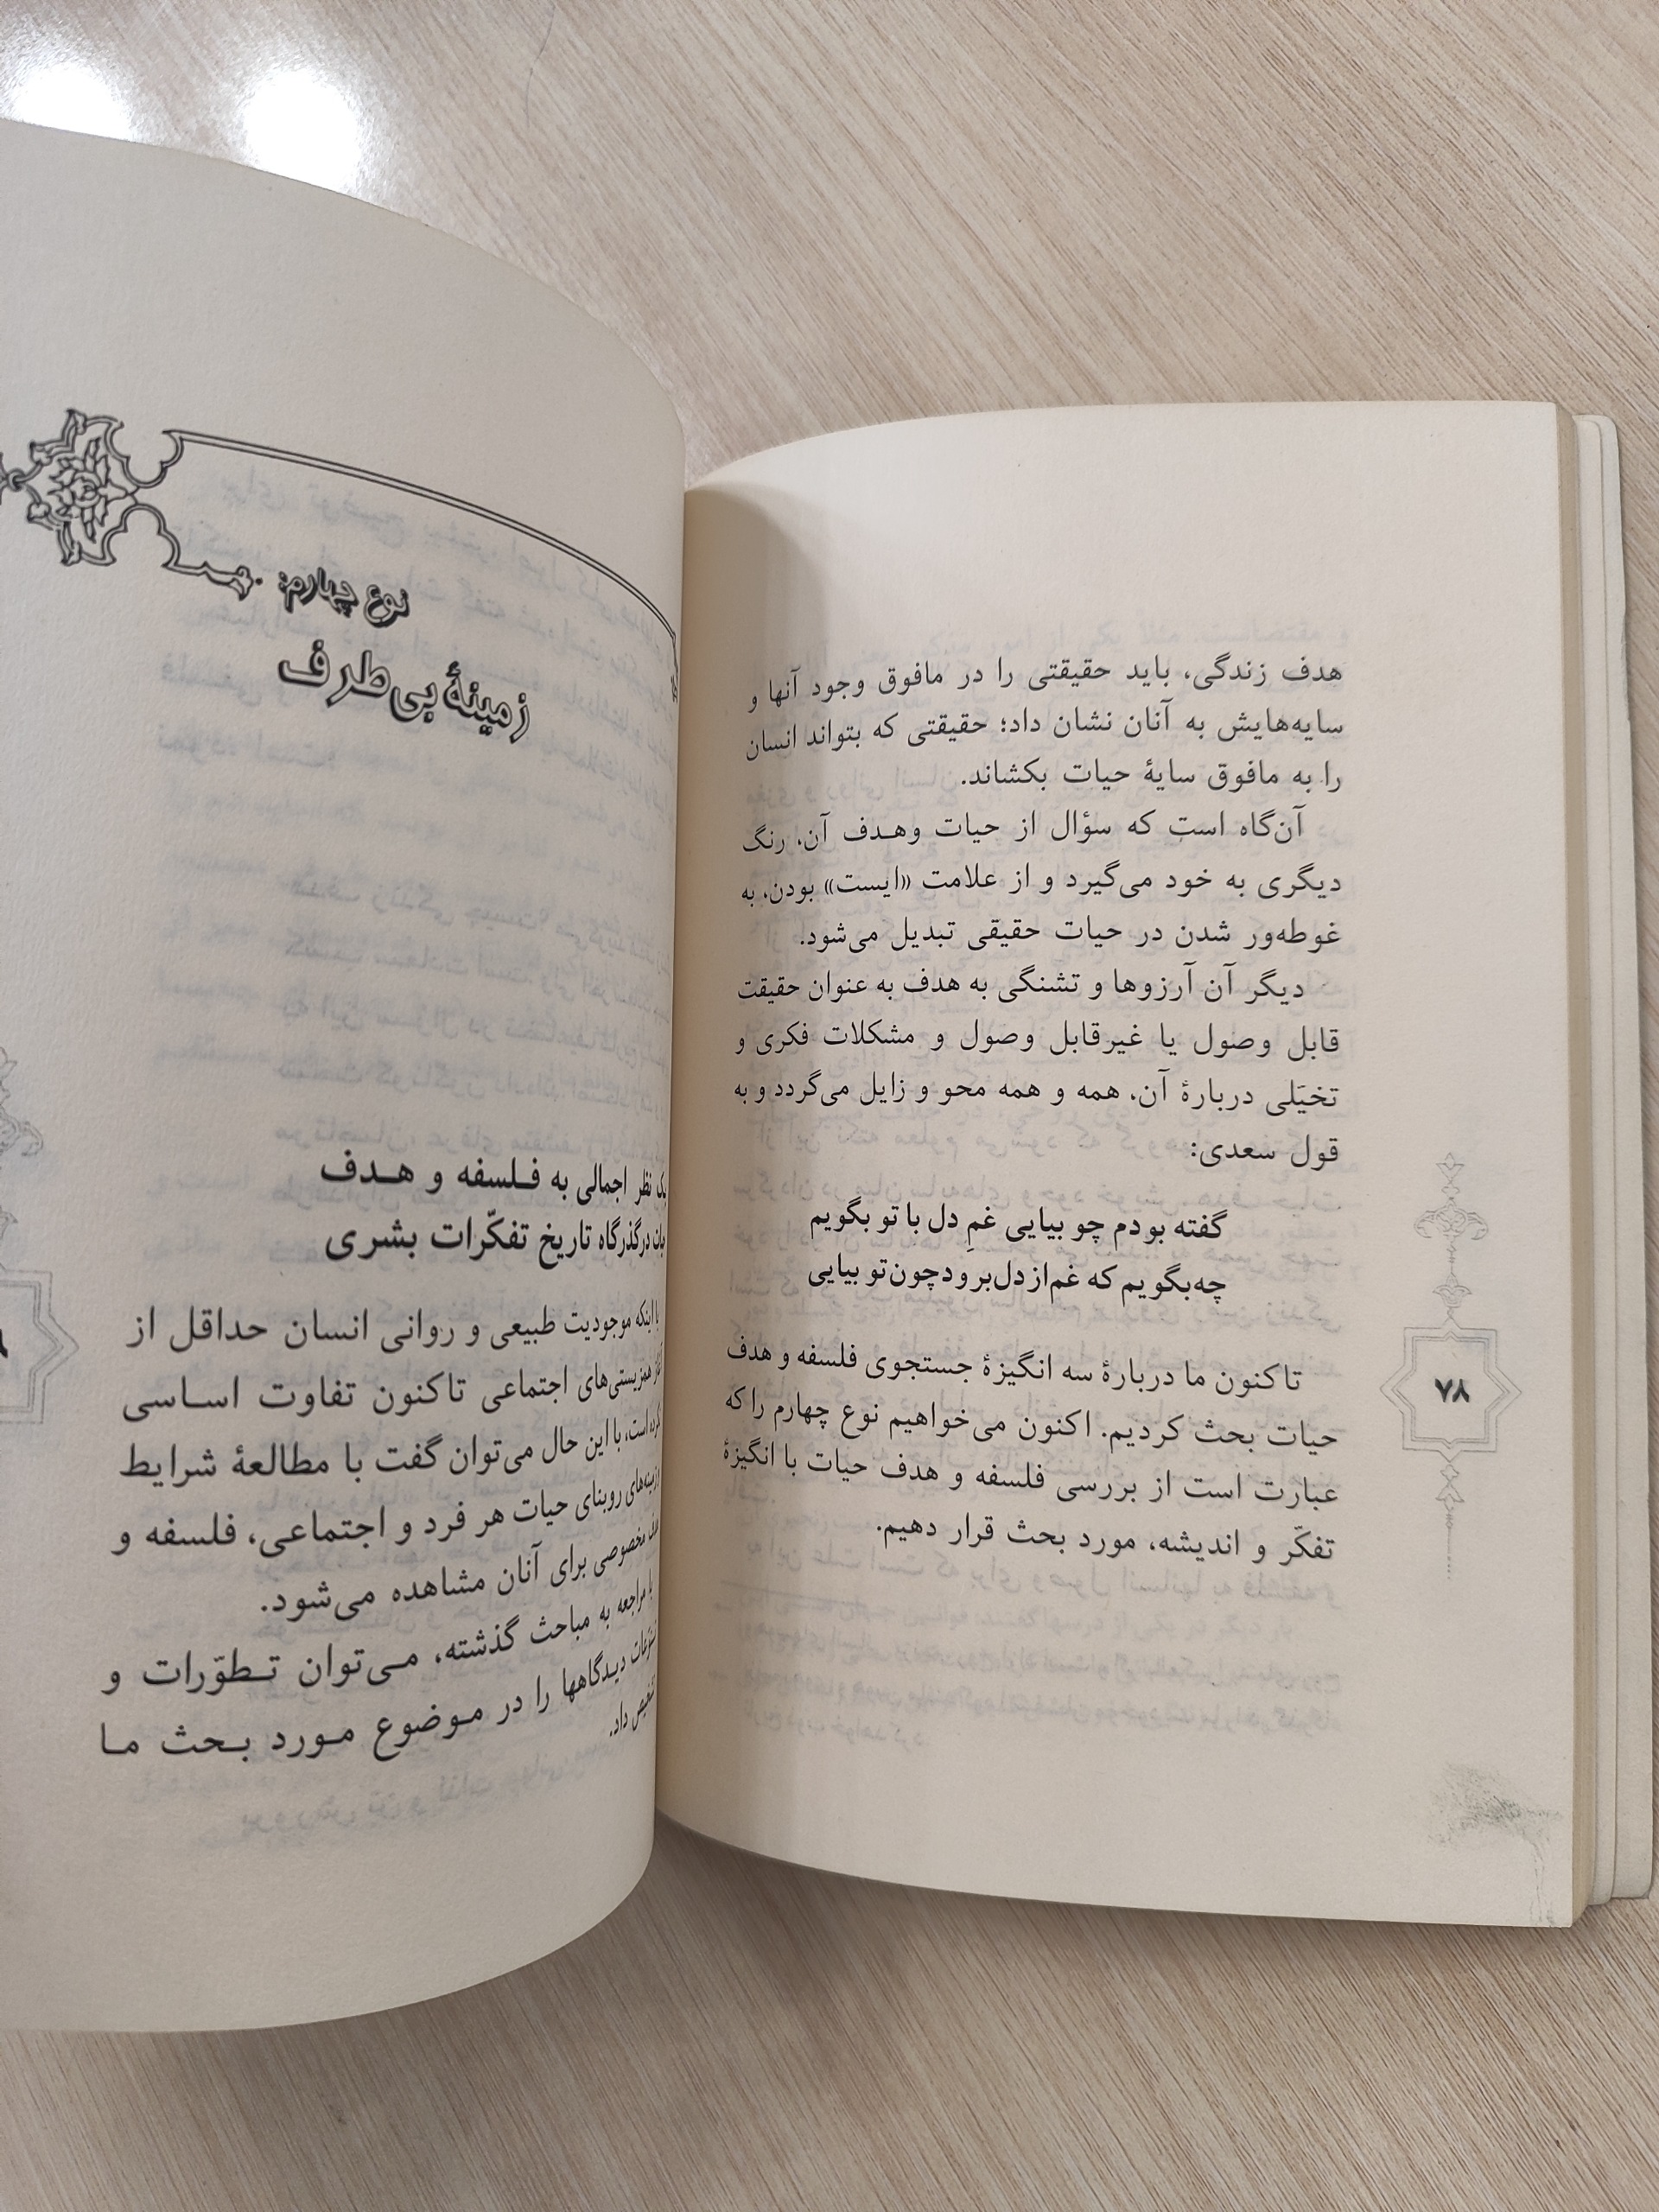 هدف زندگی، باید حقیقتی را در مافوق وجود آنها و
سایه‌هایش به آنان نشان داد؛ حقیقتی که بتواند انسان
را به مافوق سایهٔ حیات بکشاند.
آن‌گاه است که سؤال از حیات وهدف آن، رنگ
دیگری به خود می‌گیرد و از علامت «ایست» بودن، به
غوطه‌ور شدن در حیات حقیقی تبدیل می‌شود.
دیگر آن آرزوها و تشنگی به هدف به عنوان حقیقت
قابل وصول یا غیرقابل وصول و مشکلات فکری و
تخیّلی دربارهٔ آن، همه و همه محو و زایل می‌گردد و به
قول سعدی:
گفته بودم چو بیایی غمِ دل با تو بگویم
چه‌بگویم که غم‌از‌دل‌برود‌چون‌تو بیایی
تاکنون ما دربارهٔ سه انگیزهٔ جستجوی فلسفه و هدف
حیات بحث کردیم. اکنون می‌خواهیم نوع چهارم را که
عبارت است از بررسی فلسفه و هدف حیات با انگیزهٔ
تفکّر و اندیشه، مورد بحث قرار دهیم.
۷۸
نوع چهارم:
زمینهٔ بی‌طرف
یک نظر اجمالی به فلسفه و هدف
در گذرگاه تاریخ تفکّرات بشری
با اینکه موجودیت طبیعی و روانی انسان حداقل از
همزیستی‌های اجتماعی تاکنون تفاوت اساسی
نکرده است، با این حال می‌توان گفت با مطالعهٔ شرایط
روبنای حیات هر فرد و اجتماعی، فلسفه و
مخصوصی برای آنان مشاهده می‌شود.
با مراجعه به مباحث گذشته، می‌توان تطوّرات و
تنوعات دیدگاهها را در موضوع مورد بحث ما
تشخیص داد.